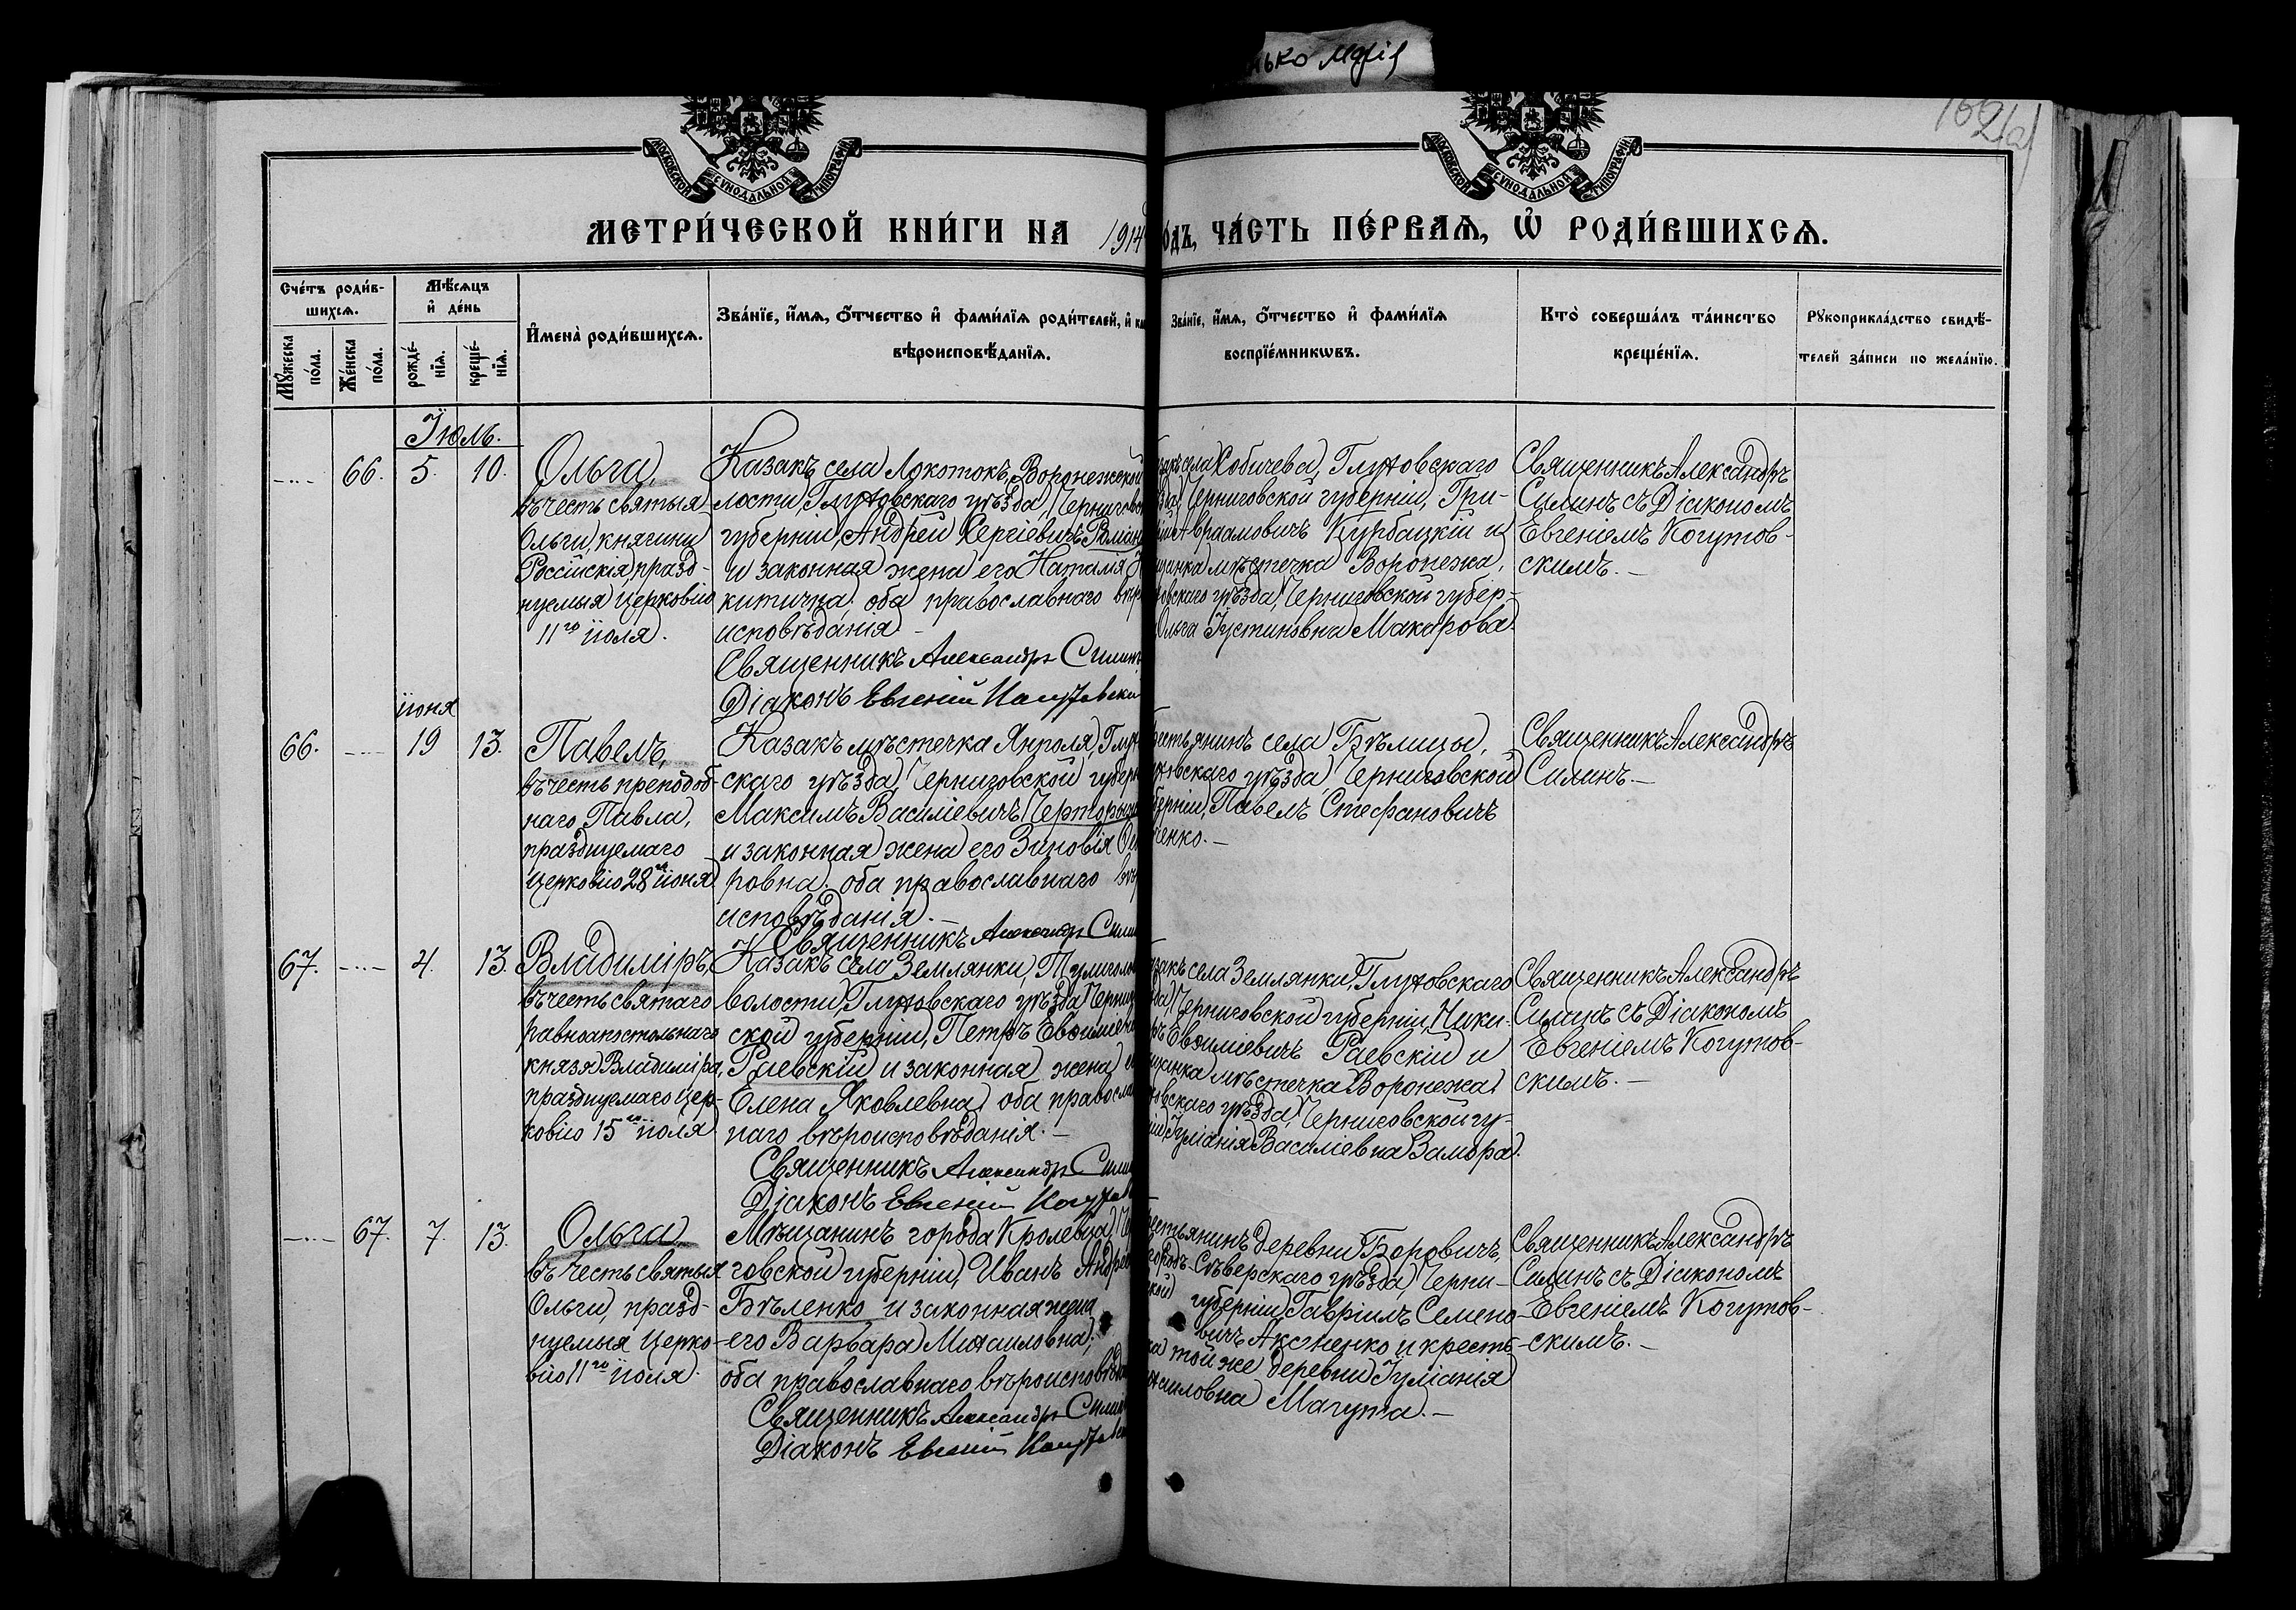 нько Марія
МОСКОВСКОЙ СѴНОДАЛЬНОЙ ТИПОГРАФІИ
МОСКОВСКОЙ СѴНОДАЛЬНОЙ ТИПОГРАФІИ
МЕТРИ́ЧЕСКОЙ КНИ́ГИ НА 1914
одъ, ЧА́СТЬ ПЕ́РВАѦ, Ѡ РОДИ́ВШИХСѦ.
Сче́тъ роди́в-
шихсѧ.
Му́жеска по́ла.
Же́нска по́ла.
Мѣ́сѧцъ
и҆ де́нь
рожде́-
нїѧ.
креще́-
нїѧ.
И҆мена̀ роди́вшихсѧ.
Зва́нїе, и҆́мѧ, ѻ҆́тчество и҆ фами́лїѧ роди́телей, и҆
вѣроисповѣ́данїѧ.
Зва́нїе, и҆́мѧ, ѻ҆́тчество и҆ фами́лїѧ
воспрїе́мникѡвъ.
Кто̀ соверша́лъ та́инство
креще́нїѧ.
Рꙋкоприкла́дство свидѣ́-
телей за́писи по жела́нїю.
Іюль.
66. 5. 10.
Ольга,
въ честь святыя
Ольги, княгини
Россійскія, празд-
нуемыя Церковію
11го іюля.
Казакъ села Локотокъ, Воронежской
лости, Глуховскаго уѣзда, Чернигов
губерніи, Андрей Сергіевичъ Роман
и законная жена его Наталія
китична, оба православнаго вѣр
исповѣданія.
Священникъ Александръ Силинъ
Діаконъ Евгеній Когутовски
села Собичева, Глуховскаго
Черниговской губерніи, Гри-
Авраамовичъ Курбацкій и
мѣстечка Воронежа,
овскаго уѣзда, Черниговской губер-
Ольга Іустиновна Макарова.
Священникъ Александръ
Силинъ съ Діакономъ
Евгеніемъ Когутов-
скимъ. –
іюня
66. 19 13.
Павелъ,
въ честь преподоб-
наго Павла,
празднуемаго
Церковію 28го іюня
Казакъ мѣстечка Янполя, Глух
скаго уѣзда, Черниговской губерн
Максимъ Василіевичъ Черторы
и законная жена его Зиновія
ровна, оба православнаго вѣр
исповѣданія. –
Священникъ Александръ Сили
естьянинъ села Бѣлицы,
ховскаго уѣзда, Черниговской
берніи, Павелъ Стефановичъ
енко. –
Священникъ Александръ
Силинъ. –
67. 4. 13.
Владиміръ,
въ честь святаго
равноапостольнаго
князя Владиміра,
празднуемаго Цер-
ковію 15го іюля
Казакъ села Землянки, Тулиголов
волости, Глуховскаго уѣзда, Черниг
ской губерніи, Петръ Евѳиміев
Раевскій и законная жена е
Елена Яковлевна, оба правосла
наго вѣроисповѣданія. –
Священникъ Александръ Сили
Діаконъ Евгеній Когутов
закъ села Землянки, Глуховскаго
Черниговской губерніи, Ники-
Евѳиміевичъ Раевскій и
мѣстечка Воронежа
овскаго уѣзда, Черниговской гу-
Іуліанія Василіевна Замора.
Священникъ Александръ
Силинъ съ Діакономъ
Евгеніемъ Когутов-
скимъ. –
67. 7. 13.
Ольга,
въ честь святыя
Ольги, празд-
нуемыя Церко-
вію 11го іюля.
Мѣщанинъ города Кролевца, Че
говской губерніи, Иванъ Андрее
Бѣленко и законная жена
его Варвара Михаиловна,
оба православнаго вѣроисповѣда
Священникъ Александръ Силин
Діаконъ Евгеній Когутовс
естьянинъ деревни Боровичъ,
городъ-Сѣверскаго уѣзда, Черни-
ской губерніи, Гавріилъ Семено-
вичъ Аксіненко и кресть-
ка той же деревни Іуліанія
хаиловна Магута. –
Священникъ Александръ
Силинъ съ Діакономъ
Евгеніемъ Когутов-
скимъ. –